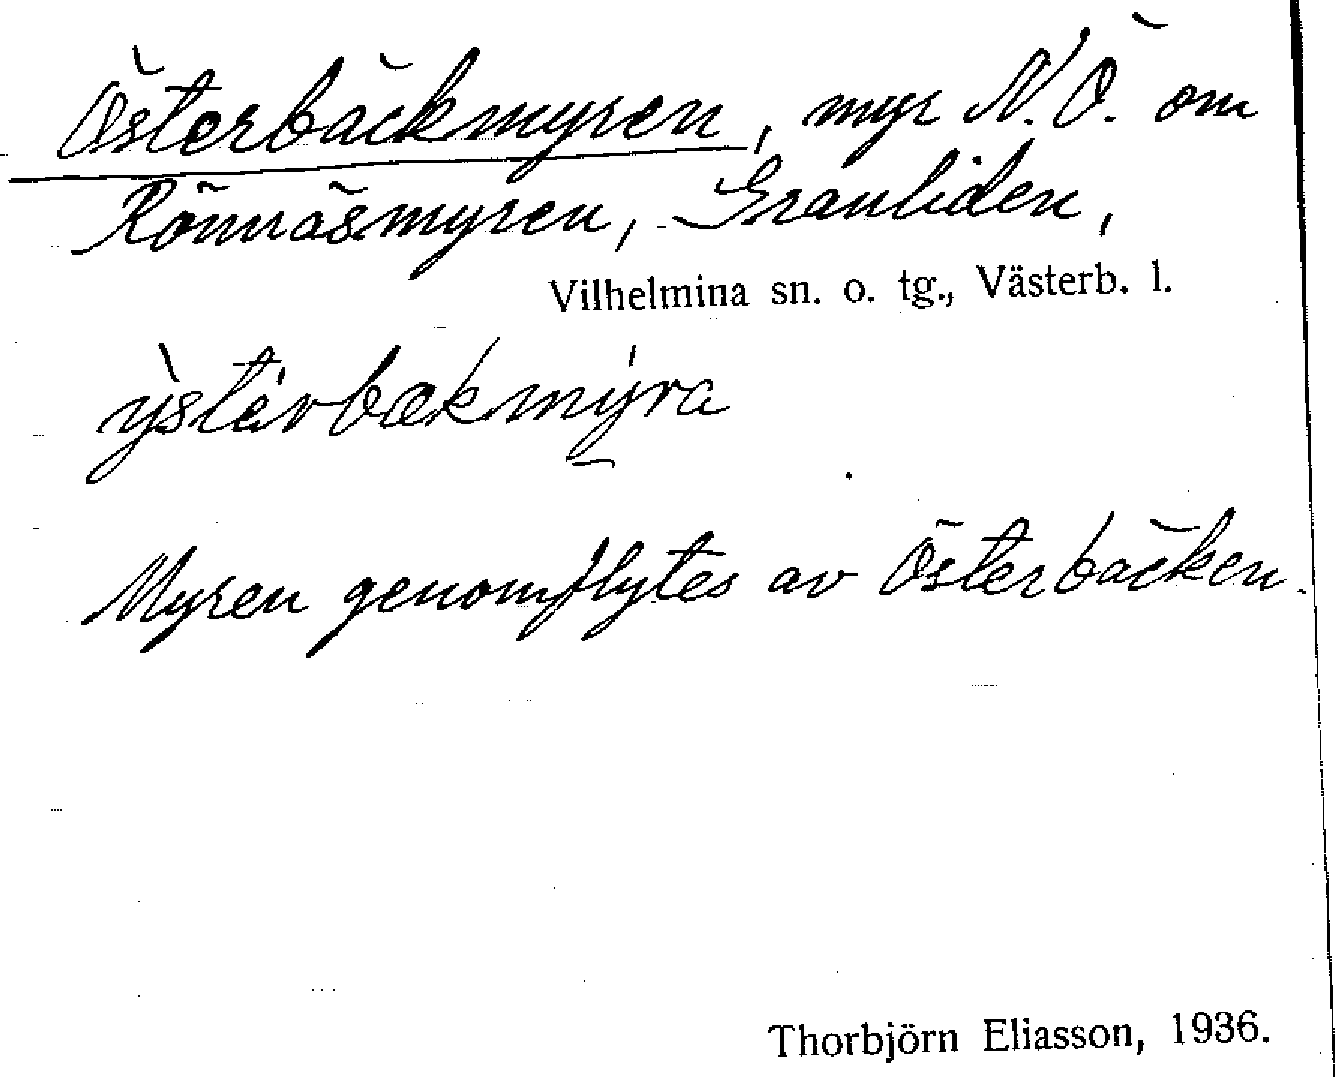 Österbäckmyren, myr N.Ö. om
Rönnäsmyren, Granliden,
Vilhelmina sn. o. tg., Västerb. l.
ỳstérbækmýra
Myren genomflytes av Österbäcken.
Thorbjörn Eliasson, 1936.